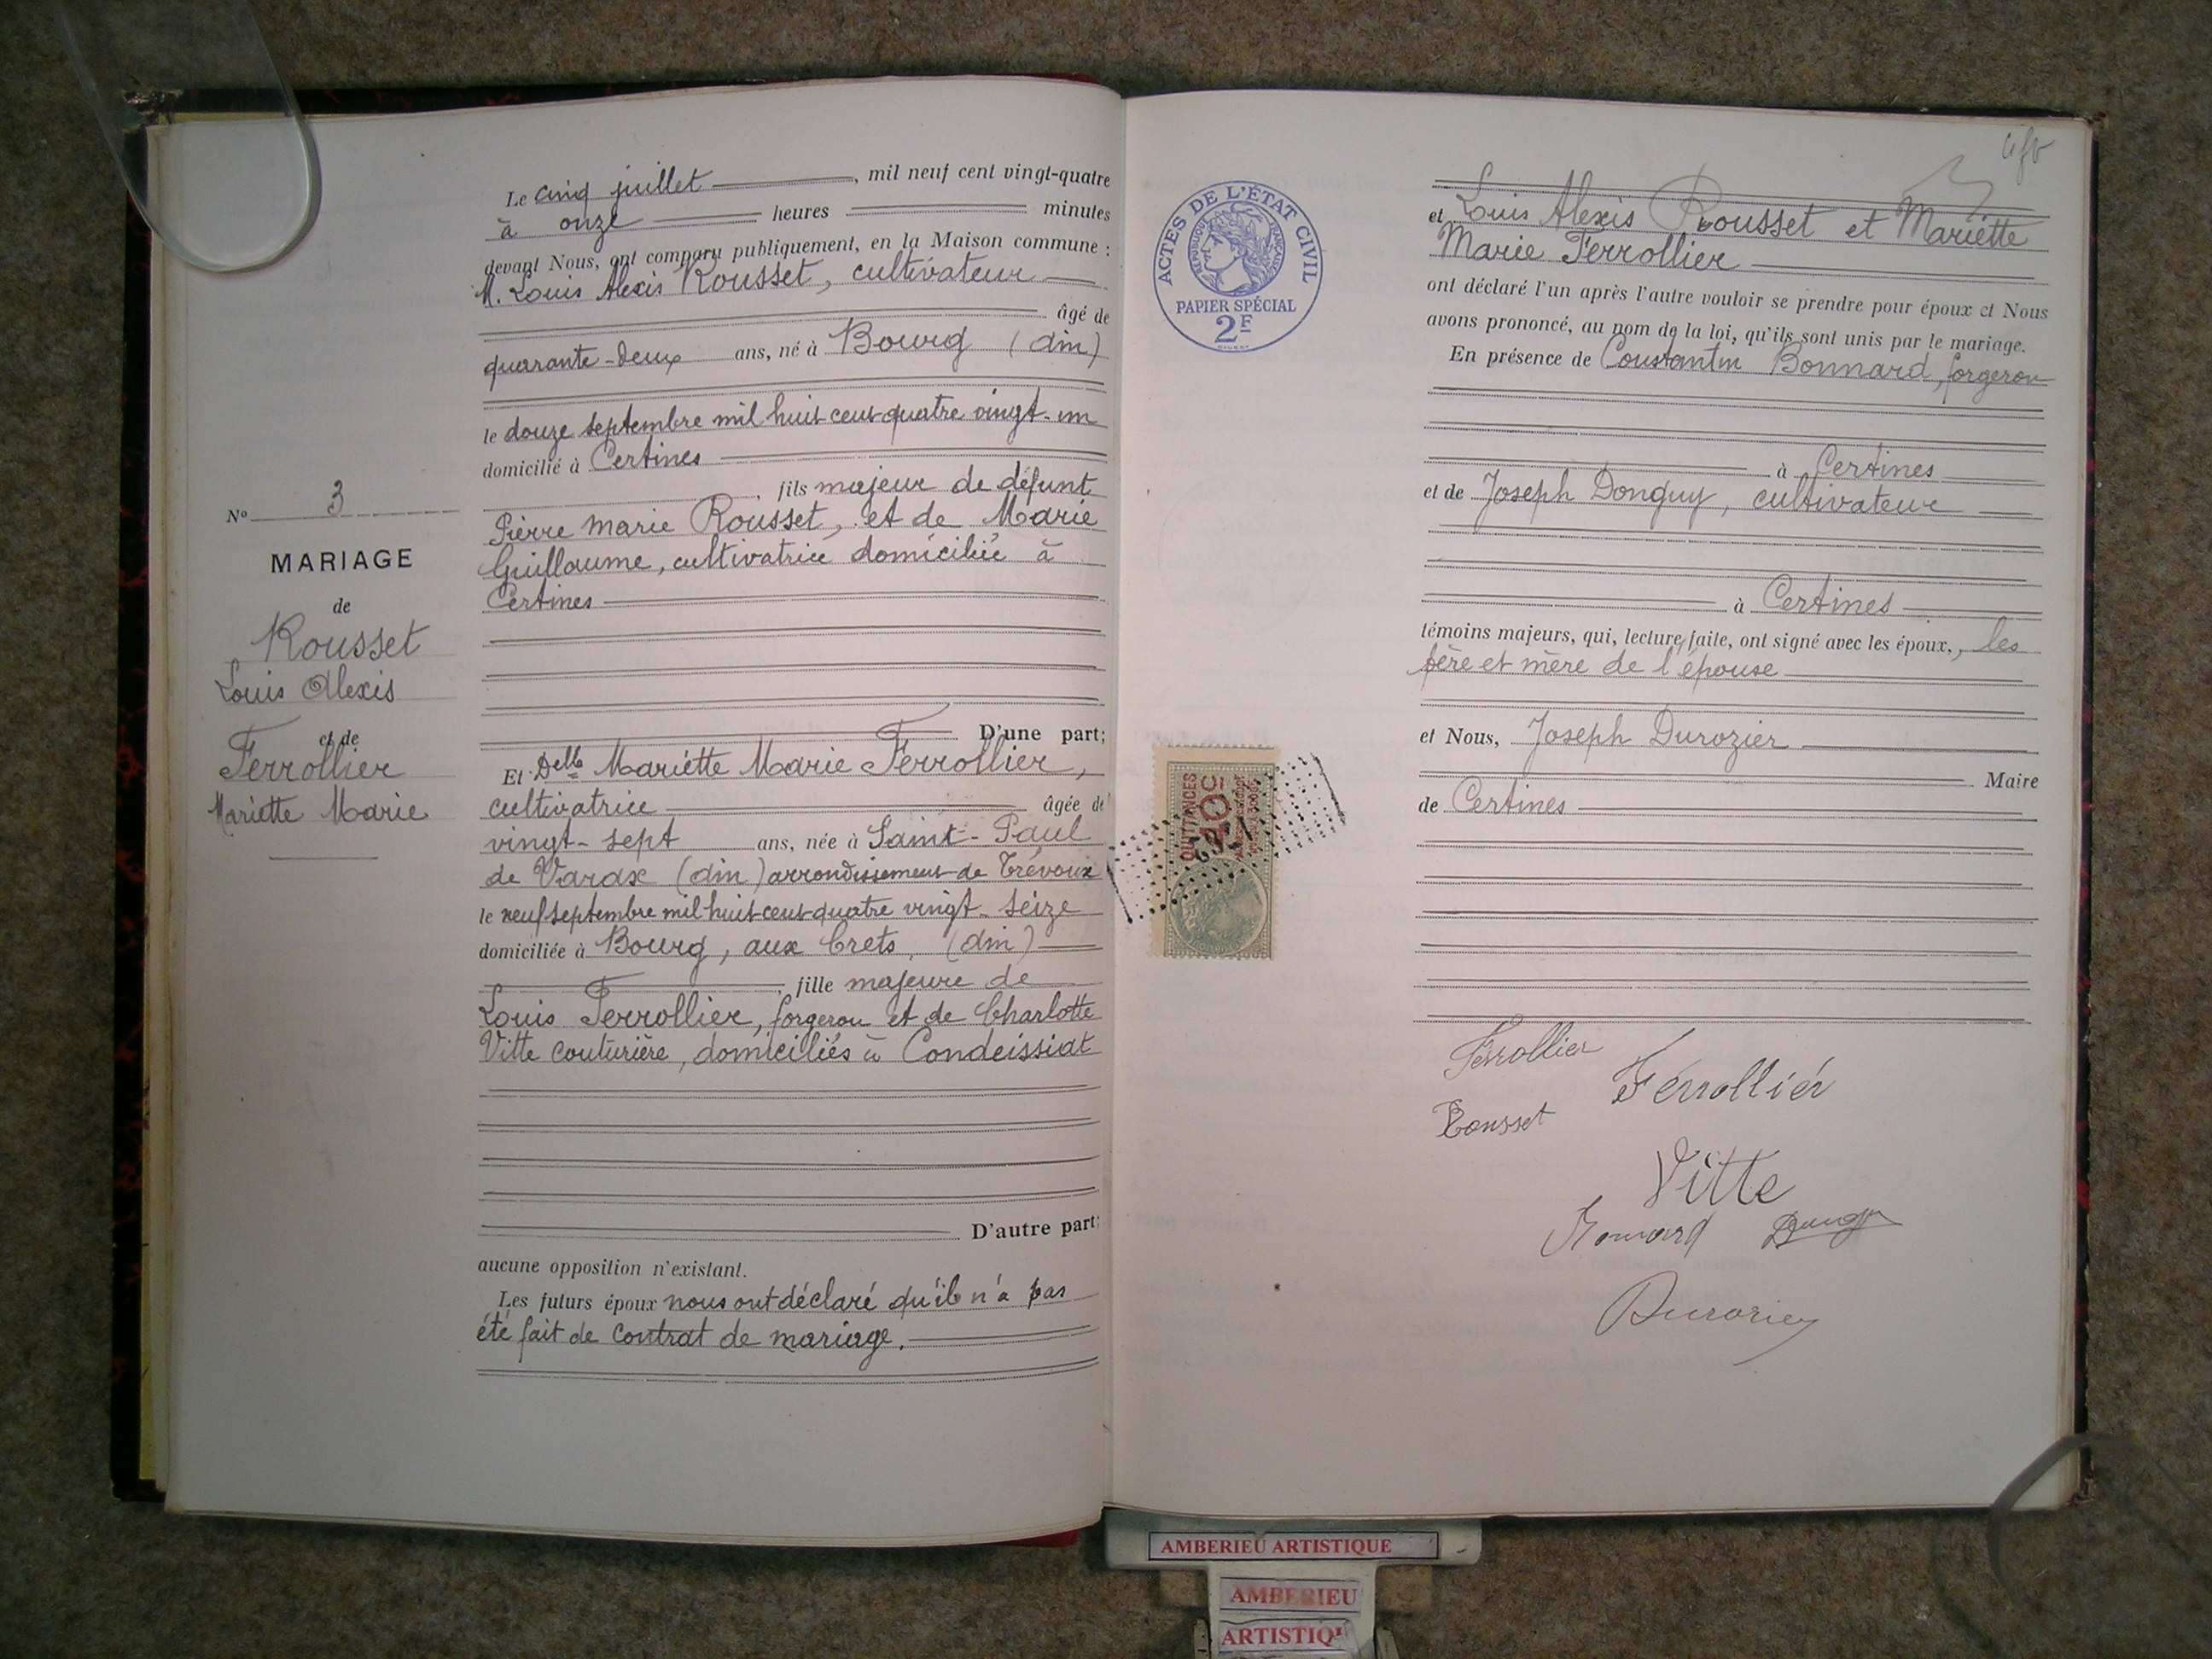 Le cinq juillet, mil neuf cent vingt-quatre
à onze heures minutes
devant Nous, ont comparu publiquement, en la Maison commune :
M. Louis Alexis Rousset, cultivateur
âgé de
quarante-deux ans, né à Bourg (Ain)
le douze septembre mil huit cent quatre vingt-un
domicilié à Certines
, fils majeur de défunt
Pierre Marie Rousset, et de Marie
Guillaume, cultivatrice domiciliée à
Certines
D'une part;
Et Delle Mariette Marie Ferrollier,
cultivatrice âgée de
vingt-sept ans, née à Saint-Paul
de Varax (Ain) arrondissement de Trévoux
le neuf septembre mil huit cent quatre vingt-seize
domiciliée à Bourg, aux Crets, (Ain)
, fille majeure de
Louis Ferrollier, forgeron et de Charlotte
Vitte couturière, domiciliés à Condeissiat
D'autre part;
aucune opposition n'existant.
Les futurs époux nous ont déclaré qu'il n'a pas
été fait de contrat de mariage.
No 3
MARIAGE
de
Rousset
Louis Alexis
et de
Ferrollier
Mariette Marie
ACTES DE L'ÉTAT CIVIL
RÉPUBLIQUE FRANÇAISE
PAPIER SPÉCIAL
2F
QUITTANCES
et Louis Alexis Rousset et Mariette
Marie Ferrollier
ont déclaré l'un après l'autre vouloir se prendre pour époux et Nous
avons prononcé, au nom de la loi, qu'ils sont unis par le mariage.
En présence de Constantin Bonnard, forgeron
à Certines
et de Joseph Donguy, cultivateur
à Certines
témoins majeurs, qui, lecture faite, ont signé avec les époux, les
père et mère de l'épouse
et Nous, Joseph Durozier
Maire
de Certines
Ferrollier
Ferrollier
Rousset
Vitte
Bonnard Donguy
Durozier
AMBERIEU ARTISTIQUE
AMBERIEU
ARTISTIQU